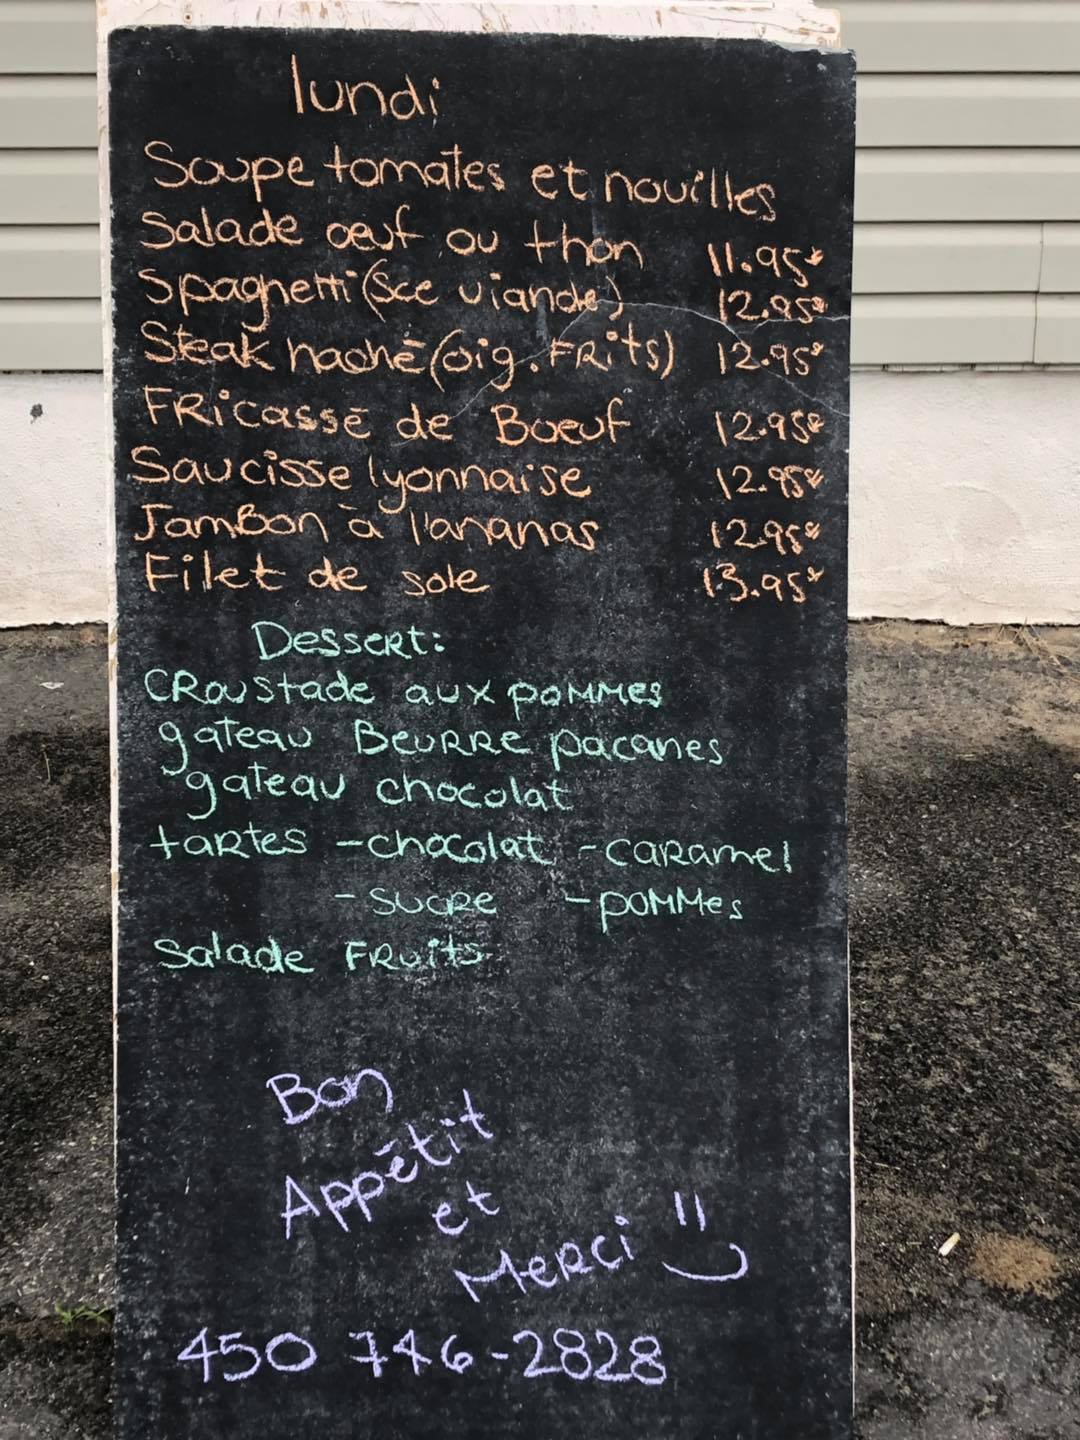 lundi
Soupe tomates et nouilles
Salade oeuf ou thon 11.95*
Spaghetti (sce viande) 12.95*
Steak haché (oig. FRits) 12.95*
FRicassé de Boeuf 12.95*
Saucisse lyonnaise 12.95*
JamBon à l'ananas 12.95*
Filet de sole 13.95*
Dessert:
CRoustade aux poMMes
gateau BeuRRe pacanes
gateau chocolat
taRtes - chocolat - caRamel
- sucRe - poMMes
Salade FRuits
Bon
Appétit
et
MeRci
450 746-2828